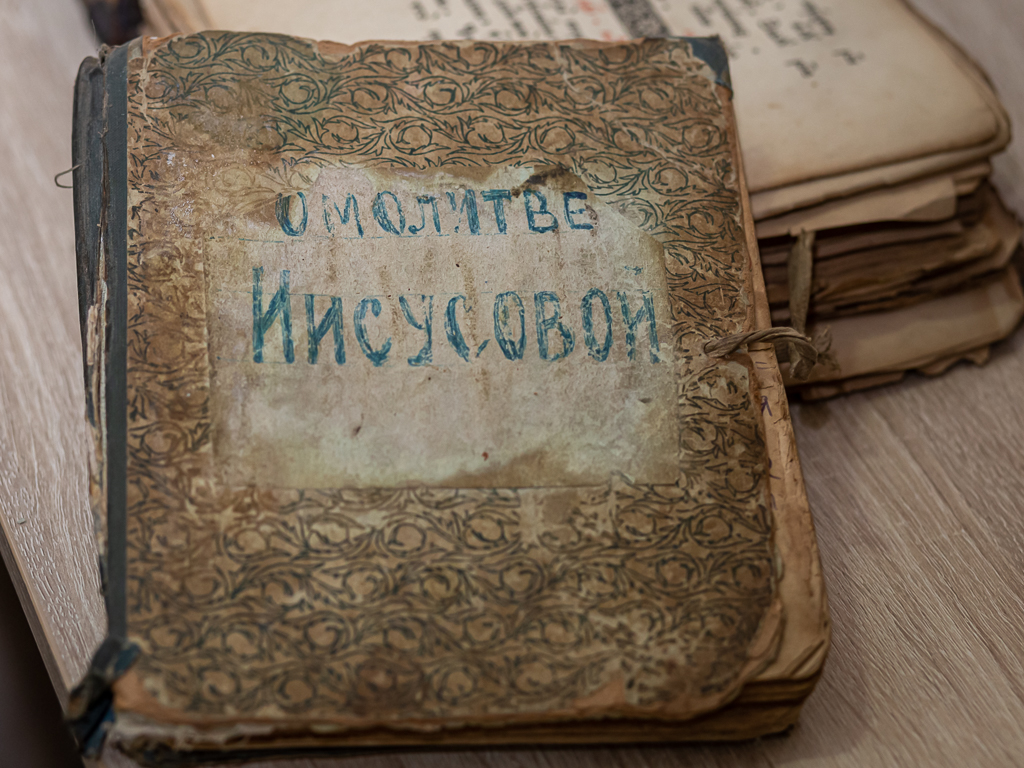 О МОЛИТВЕ
ИИСУСОВОЙ